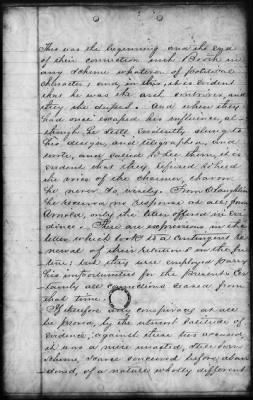 This was the beginning and the end
of their connection with Booth in
any scheme whatever of political
character; and, in this, it is evident
that he was the arch contriver, and
they the dupes. And when they
had once escaped his influence, al-
though he still evidently clung to
his design, and telegraphed, and
wrote, and called to see them, it is
evident that they refused to heed
the voice of the charmer, charm
he never so wisely. From O'Laughlin
he received no response at all; from
Arnold, only the letter offered in evi
dence. There are expressions in the
letter which look to a contingent re
newal of their relations in the fu
ture; but they were employed parry
his importunities for the present. Cer
tainly all connections ceased from
that time.
If therefore any conspiracy at all
be proved, by the utmost latitude of
evidence, against these two accused,
it was a mere unacted, still
scheme, scarce conceived before aban
doned, of a nature wholly different